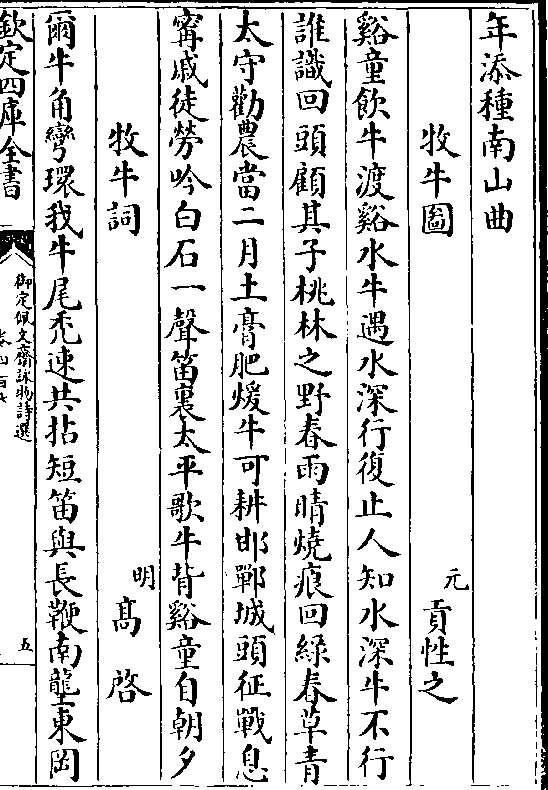 年添種南山曲
牧牛圖　元　貢性之
谿童飲牛渡谿水牛遇水深行復止人知水深牛不行
誰識回頭顧其子桃林之野春雨晴燒痕回綠春草青
太守勸農當二月土膏肥煖牛可耕邯鄲城頭征戰息
甯戚徒勞吟白石一聲笛裏太平歌牛背谿童自朝夕
牧牛詞　明　高啓
爾牛角彎環我牛尾禿速共拈短笛與長鞭南壟東岡
欽定四庫全書
御定佩文齋詠物詩選
五